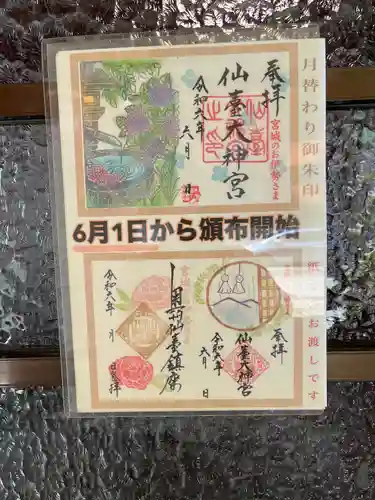 月替わり御朱印
奉拝
宮城のお伊勢さま
仙臺大神宮
令和六年
六月
日
6月1日から頒布開始
お渡しです
奉拝
仙臺大神宮
令和六年
六月
日
仙臺鎮座
令和六年
月
日